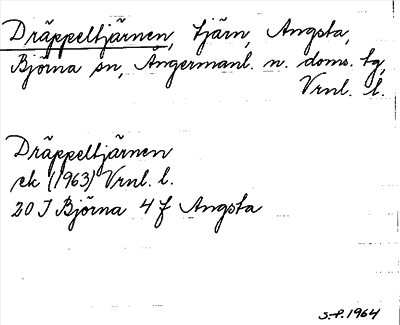 Dräppeltjärnen, tjärn, Angsta,
Björna sn, Ångermanl. n. doms. tg,
Vrnl. l.
Dräppeltjärnen
ek (1963) Vrnl. l.
20 I Björna 4 f Angsta
S.P. 1964